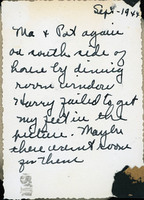 Sept - 1943
Ma & Pat again
on south side of
house by dining
room window
Harry failed to get
my feet in the
picture. Maybe
there wasn't room
for them